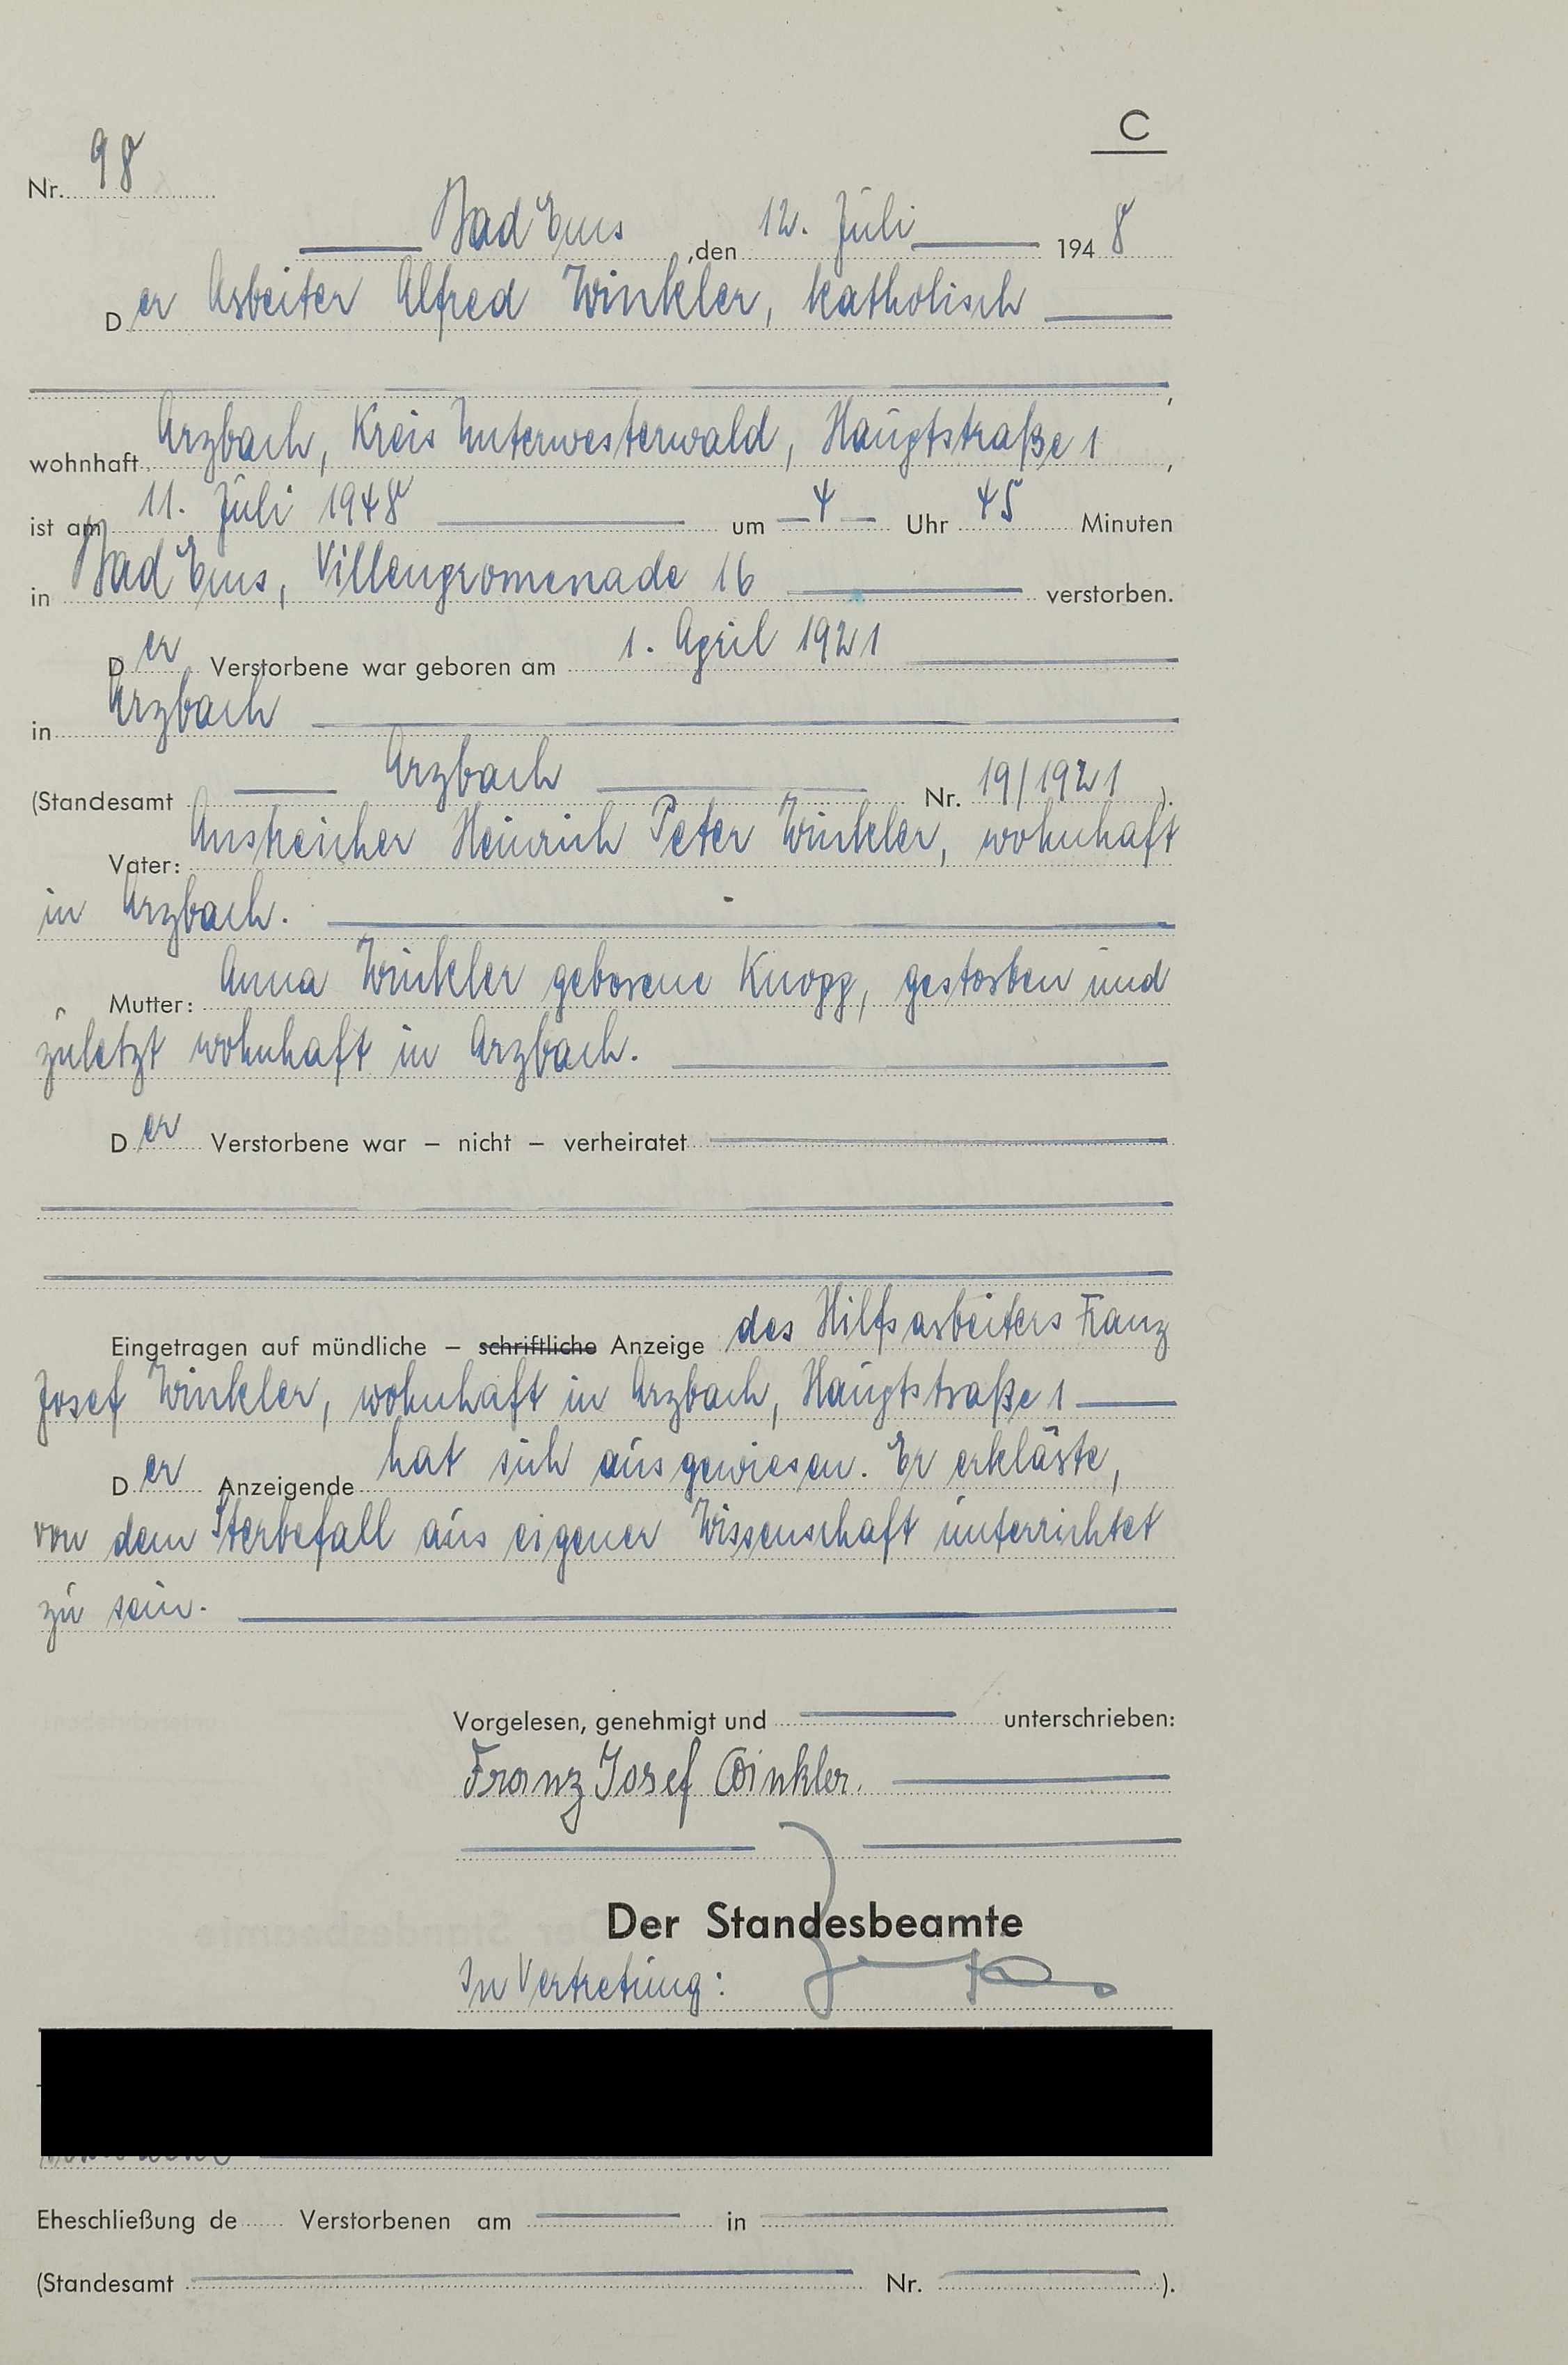 C
Nr. 98
Bad Ems, den 12. Juli 1948
Der Arbeiter Alfred Winkler, katholisch
,
wohnhaft Arzbach, Kreis Unterwesterwald, Hauptstraße 1,
ist am 11. Juli 1948 um 4 Uhr 45 Minuten
in Bad Ems, Villenpromenade 16 verstorben.
Der Verstorbene war geboren am 1. April 1921
in Arzbach
(Standesamt Arzbach Nr. 19/1921).
Vater: Anstreicher Heinrich Peter Winkler, wohnhaft
in Arzbach.
Mutter: Anna Winkler geborene Knopp, gestorben und
zuletzt wohnhaft in Arzbach.
Der Verstorbene war – nicht – verheiratet
Eingetragen auf mündliche – schriftliche Anzeige des Hilfsarbeiters Franz
Josef Winkler, wohnhaft in Arzbach, Hauptstraße 1
Der Anzeigende hat sich ausgewiesen. Er erklärte,
von dem Sterbefall aus eigener Wissenschaft unterrichtet
zu sein.
Vorgelesen, genehmigt und unterschrieben:
Franz Josef Winkler.
Der Standesbeamte
In Vertretung:
Eheschließung de Verstorbenen am in
(Standesamt Nr. ).